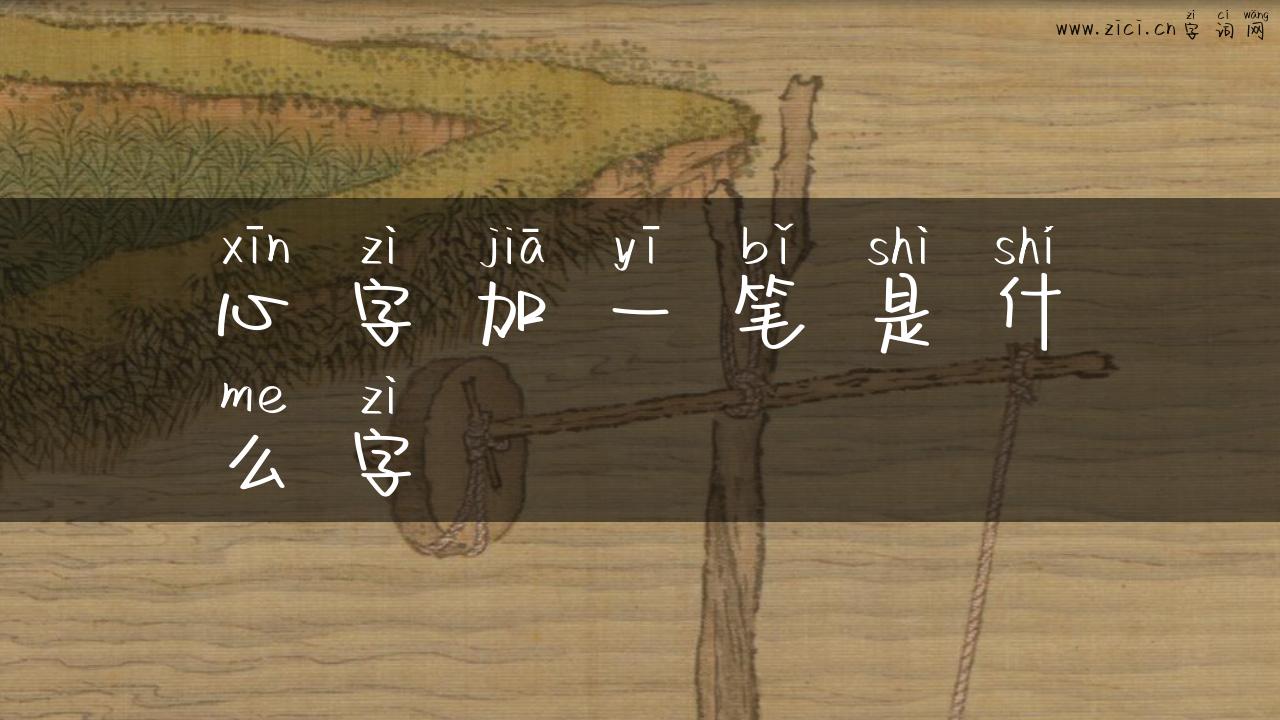 zì cí wǎng
www.zici.cn 字词网
xīn zì jiā yī bǐ shì shí
心字加一笔是什
me zì
么字